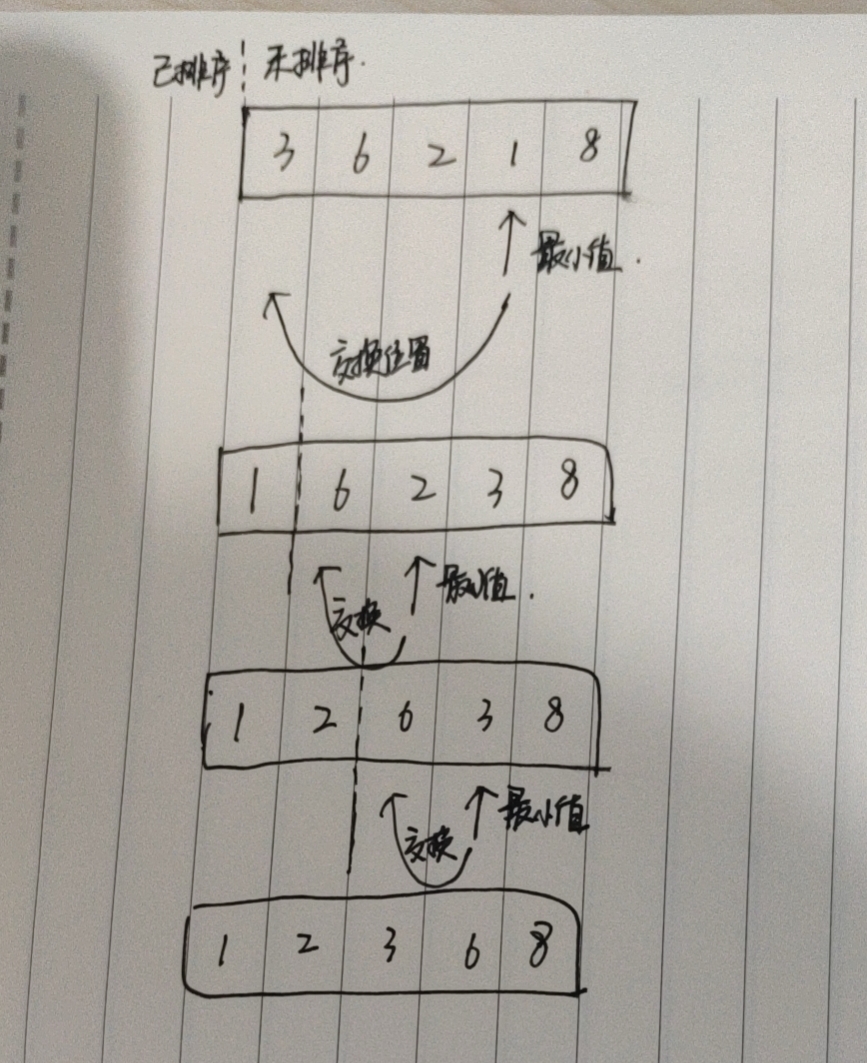 已排序 未排序.
3 6 2 1 8
最小值.
交换位置
1 6 2 3 8
最小值.
交换
1 2 6 3 8
最小值
交换
1 2 3 6 8